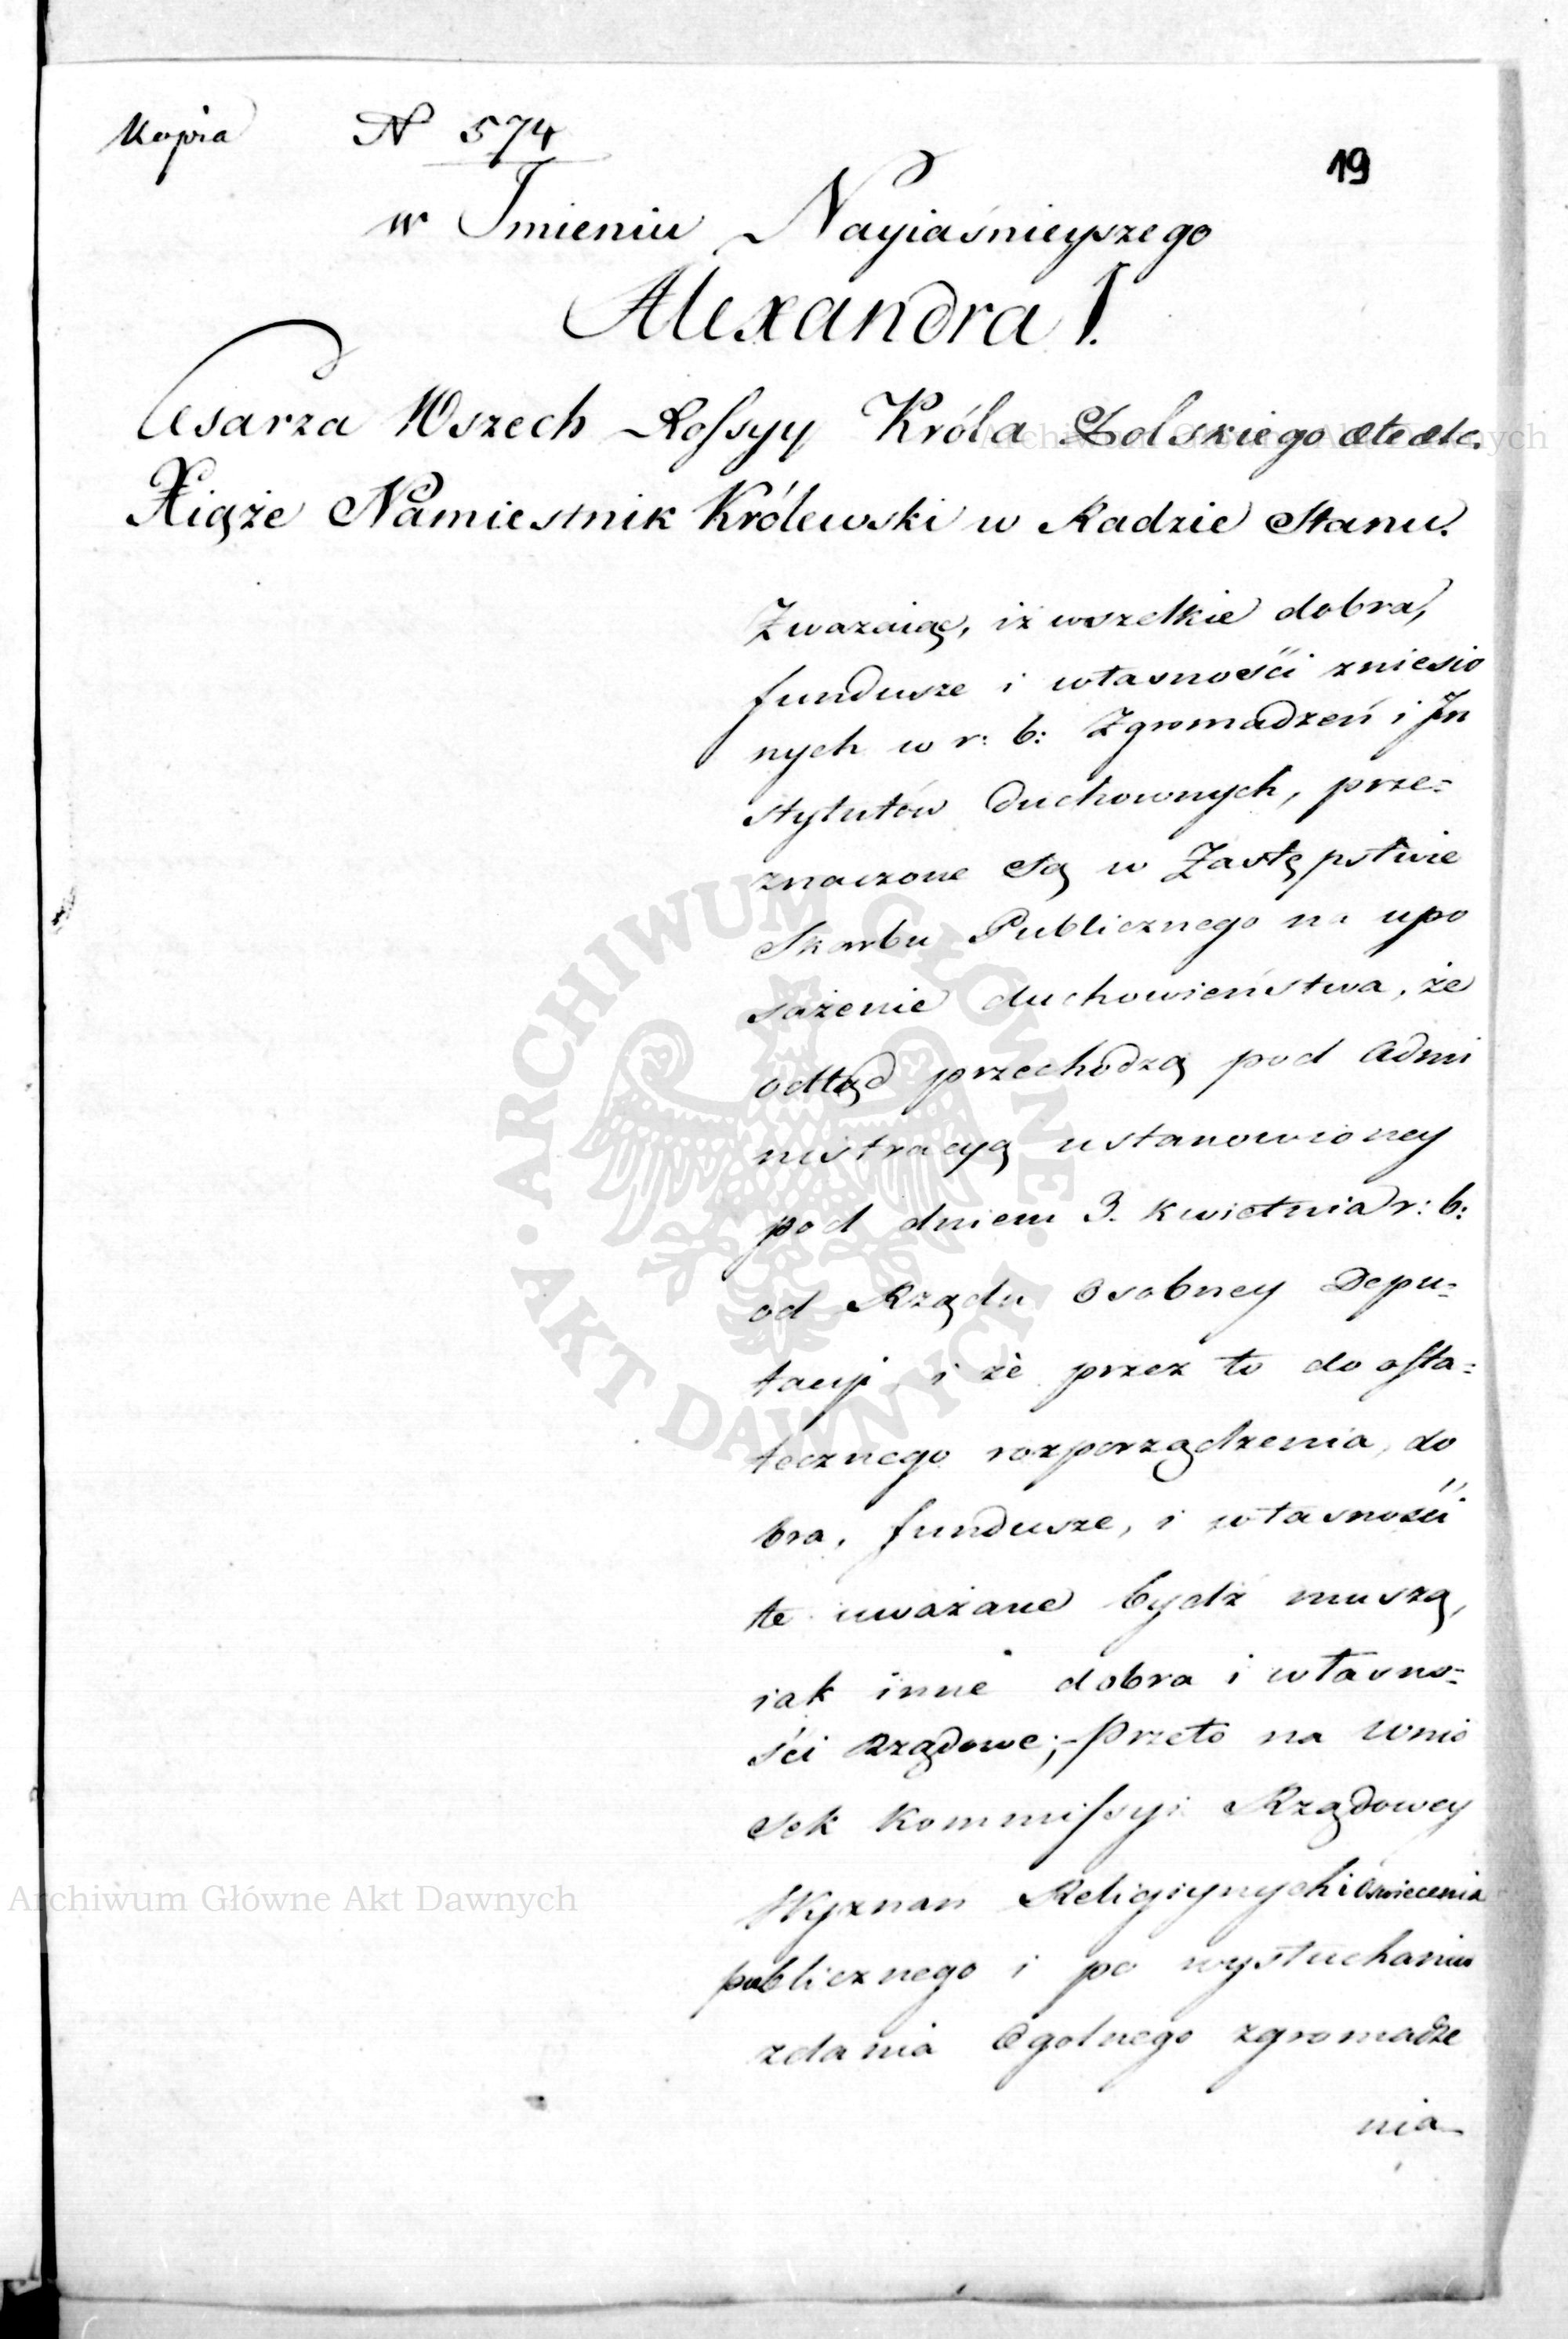 Kopia N 574
19
w Jmieniu Nayiaśnieyszego
Alexandra I.
Cesarza Wszech Rossyy Króla Polskiego etc etc.
Xiąże Namiestnik Królewski w Radzie Stanu.
Zwazaiąc, iż wszelkie dobra,
fundusze i własności zniesio
nych w r: b: Zgromadzeń i Jn
stytutów Duchownych, prze=
znaczone są w Zastępstwie
Skarbu Publicznego na upo
sażenie duchowieństwa, że
odtąd przechodzą pod Admi
nistracyą ustanowioney
pod dniem 3. Kwietnia r: b:
od Rządu Osobney Depu=
tacyi, i że przez to do osta=
tecznego rozporządzenia, do
bra, fundusze, i własności
te uważane bydź muszą,
iak inne dobra i własno=
ści Rządowe; – Przeto na Wnio
sek Kommissyi Rządowey
Wyznań Religiynych i Oświecenia
publicznego i po wysłuchaniu
zdania Ogolnego zgromadze
nia
Archiwum Główne Akt Dawnych
Archiwum Główne Akt Dawnych
ARCHIWUM GŁÓWNE · AKT DAWNYCH ·